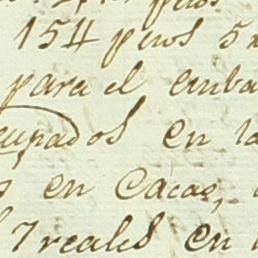 154 pesos 5
para el emba
cupados en la
en Cacao,
7 reales en